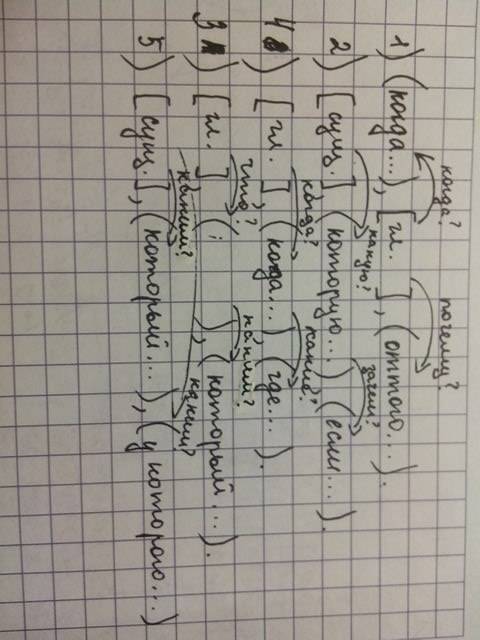 когда? почему?
1) (когда...), [гл. ], (оттого...).
какую? зачем?
2) [сущ.] (которую...) (если...).
когда? какие?
4) [гл. ] (когда...) (где...).
что? каким?
3) [гл. ] ( ), (который...).
каким? каким?
5) [сущ.], (который...), (у которого...)